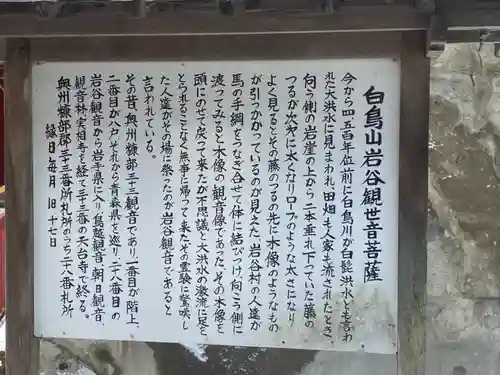 白鳥山岩谷観世音菩薩
今から四、五百年位前に白鳥川が白髭洪水とも言わ
れた大洪水に見まわれ、田畑も人家も流されたとき、
向う側の岩崖の上から一本垂れ下っていた藤の
つるが次々に太くなりロープのような太さになり
よく見るとその藤のつるの先に木像のようなもの
が引っかかっているのが見えた。岩谷村の人達が
馬の手綱をつなぎ合せて体に結びつけ、向こう側に
渡ってみると木像の観音像であった。その木像を
頭にのせて戻って来たが不思議と大洪水の激流に足を
とられることなく無事に帰って来た。その霊験に驚嘆し
た人達がその場に祭ったのが岩谷観音であると
言われている。
その昔、奥州糠部郡三十三観音であり、一番目が階上、
二番目が八戸、それから青森県を巡り、二十八番目の
岩谷観音から岩手県に入り鳥越観音、朝日観音、
観音林、実相寺を経て三十三番の天台寺で終る。
奥州糠部郡三十三番所札所のうち二十八番札所
縁日毎月旧十七日